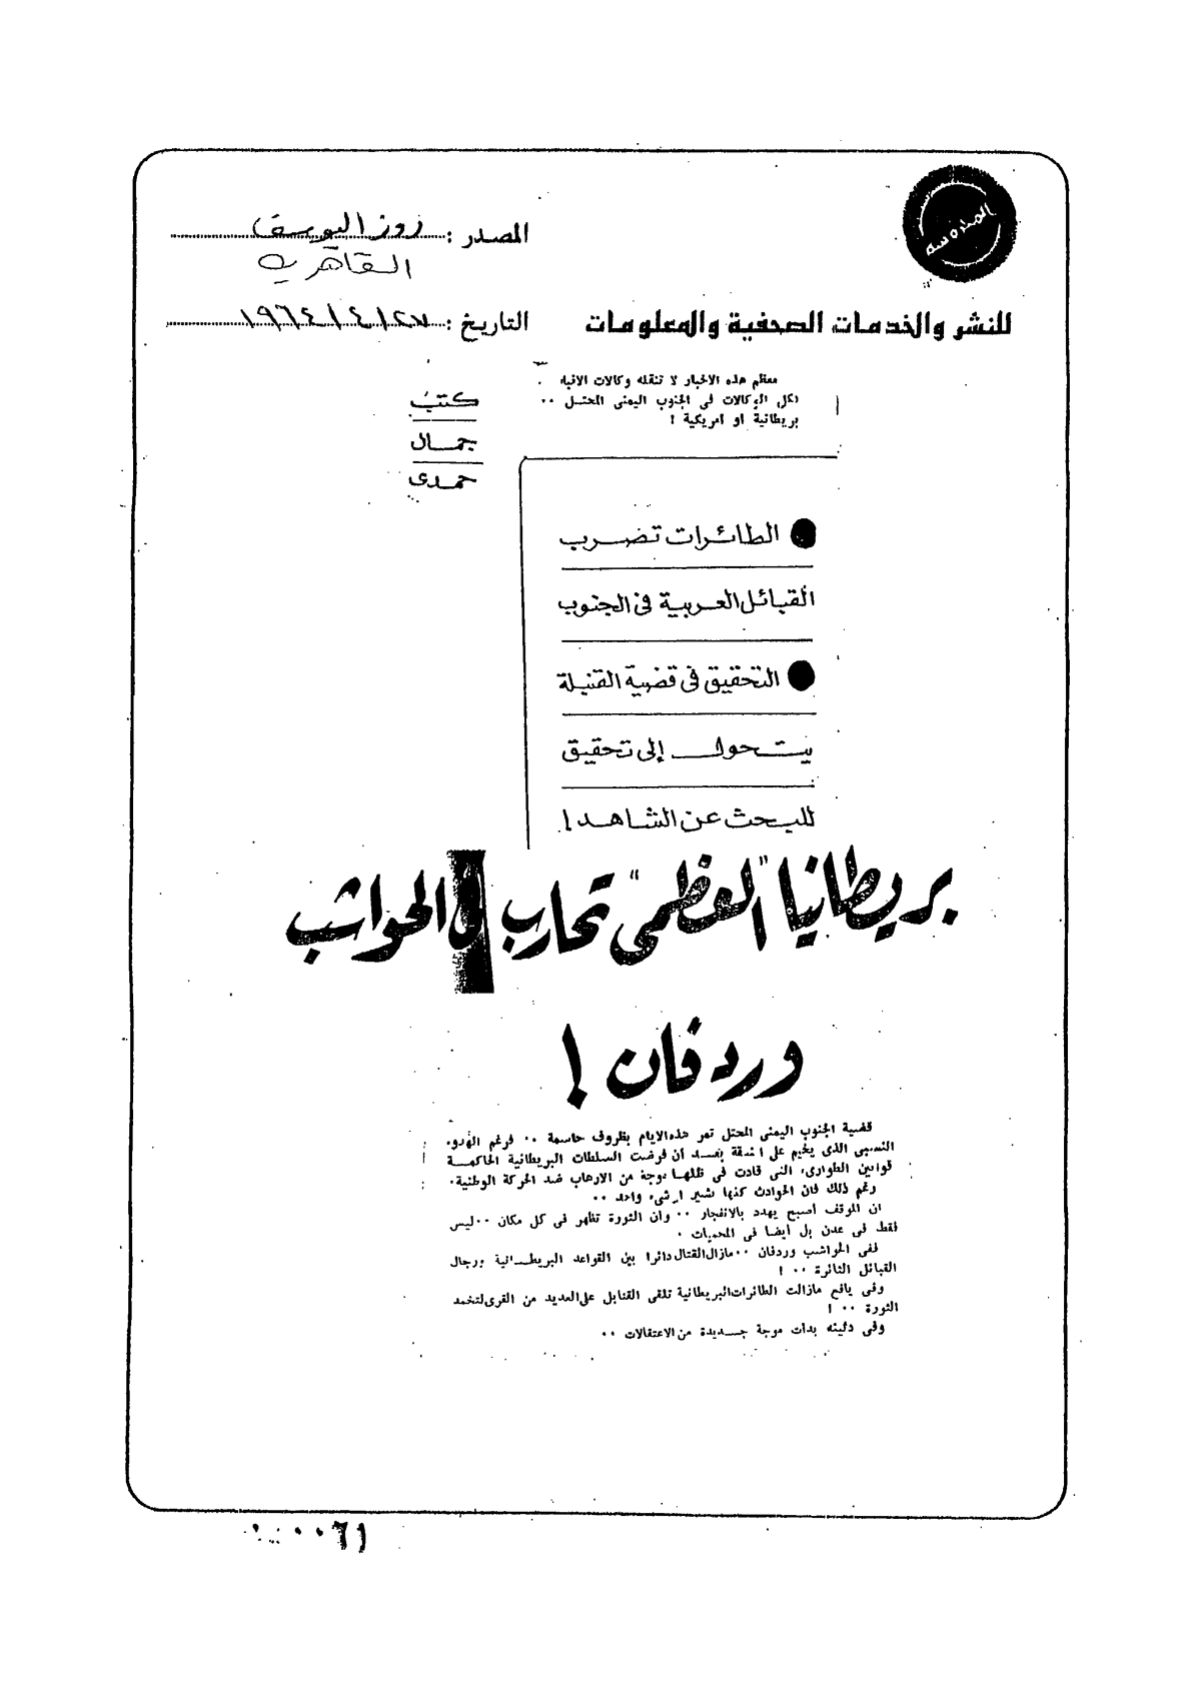 المدروسه
المصدر : روز اليوسف
القاهرية
للنشر والخدمات الصحفية والمعلومات
التاريخ : ٢٧/٤/١٩٦٤
معظم هذه الاخبار لا تنقله وكالات الانباء
لكل الوكالات فى الجنوب اليمنى المحتل ٠٠
بريطانية او امريكية !
كتب
جمال
حمدى
● الطائرات تضرب
القبائل العربية فى الجنوب
● التحقيق فى قضية القنبلة
يتحول إلى تحقيق
للبحث عن الشاهد !
بريطانيا "العظمى" تحارب فى الحواشب
وردفان !
قضية الجنوب اليمنى المحتل تمر هذه الايام بظروف حاسمة ٠٠ فرغم الهدوء
النسبى الذى يخيم على المنطقة بعد أن فرضت السلطات البريطانية الحاكمة
قوانين الطوارىء التى قادت فى ظلها موجة من الارهاب ضد الحركة الوطنية ٠
رغم ذلك فان الحوادث كلها تشير لشىء واحد ٠٠
ان الموقف أصبح يهدد بالانفجار ٠٠ وأن الثورة تظهر فى كل مكان ٠٠ ليس
فقط فى عدن بل أيضا فى المحميات ٠
ففى الحواشب وردفان ٠٠ مازال القتال دائرا بين القواعد البريطانية ورجال
القبائل الثائرة ٠٠ !
وفى يافع مازالت الطائرات البريطانية تلقى القنابل على العديد من القرى لتخمد
الثورة ٠٠ !
وفى دثينه بدأت موجة جديدة من الاعتقالات ٠٠